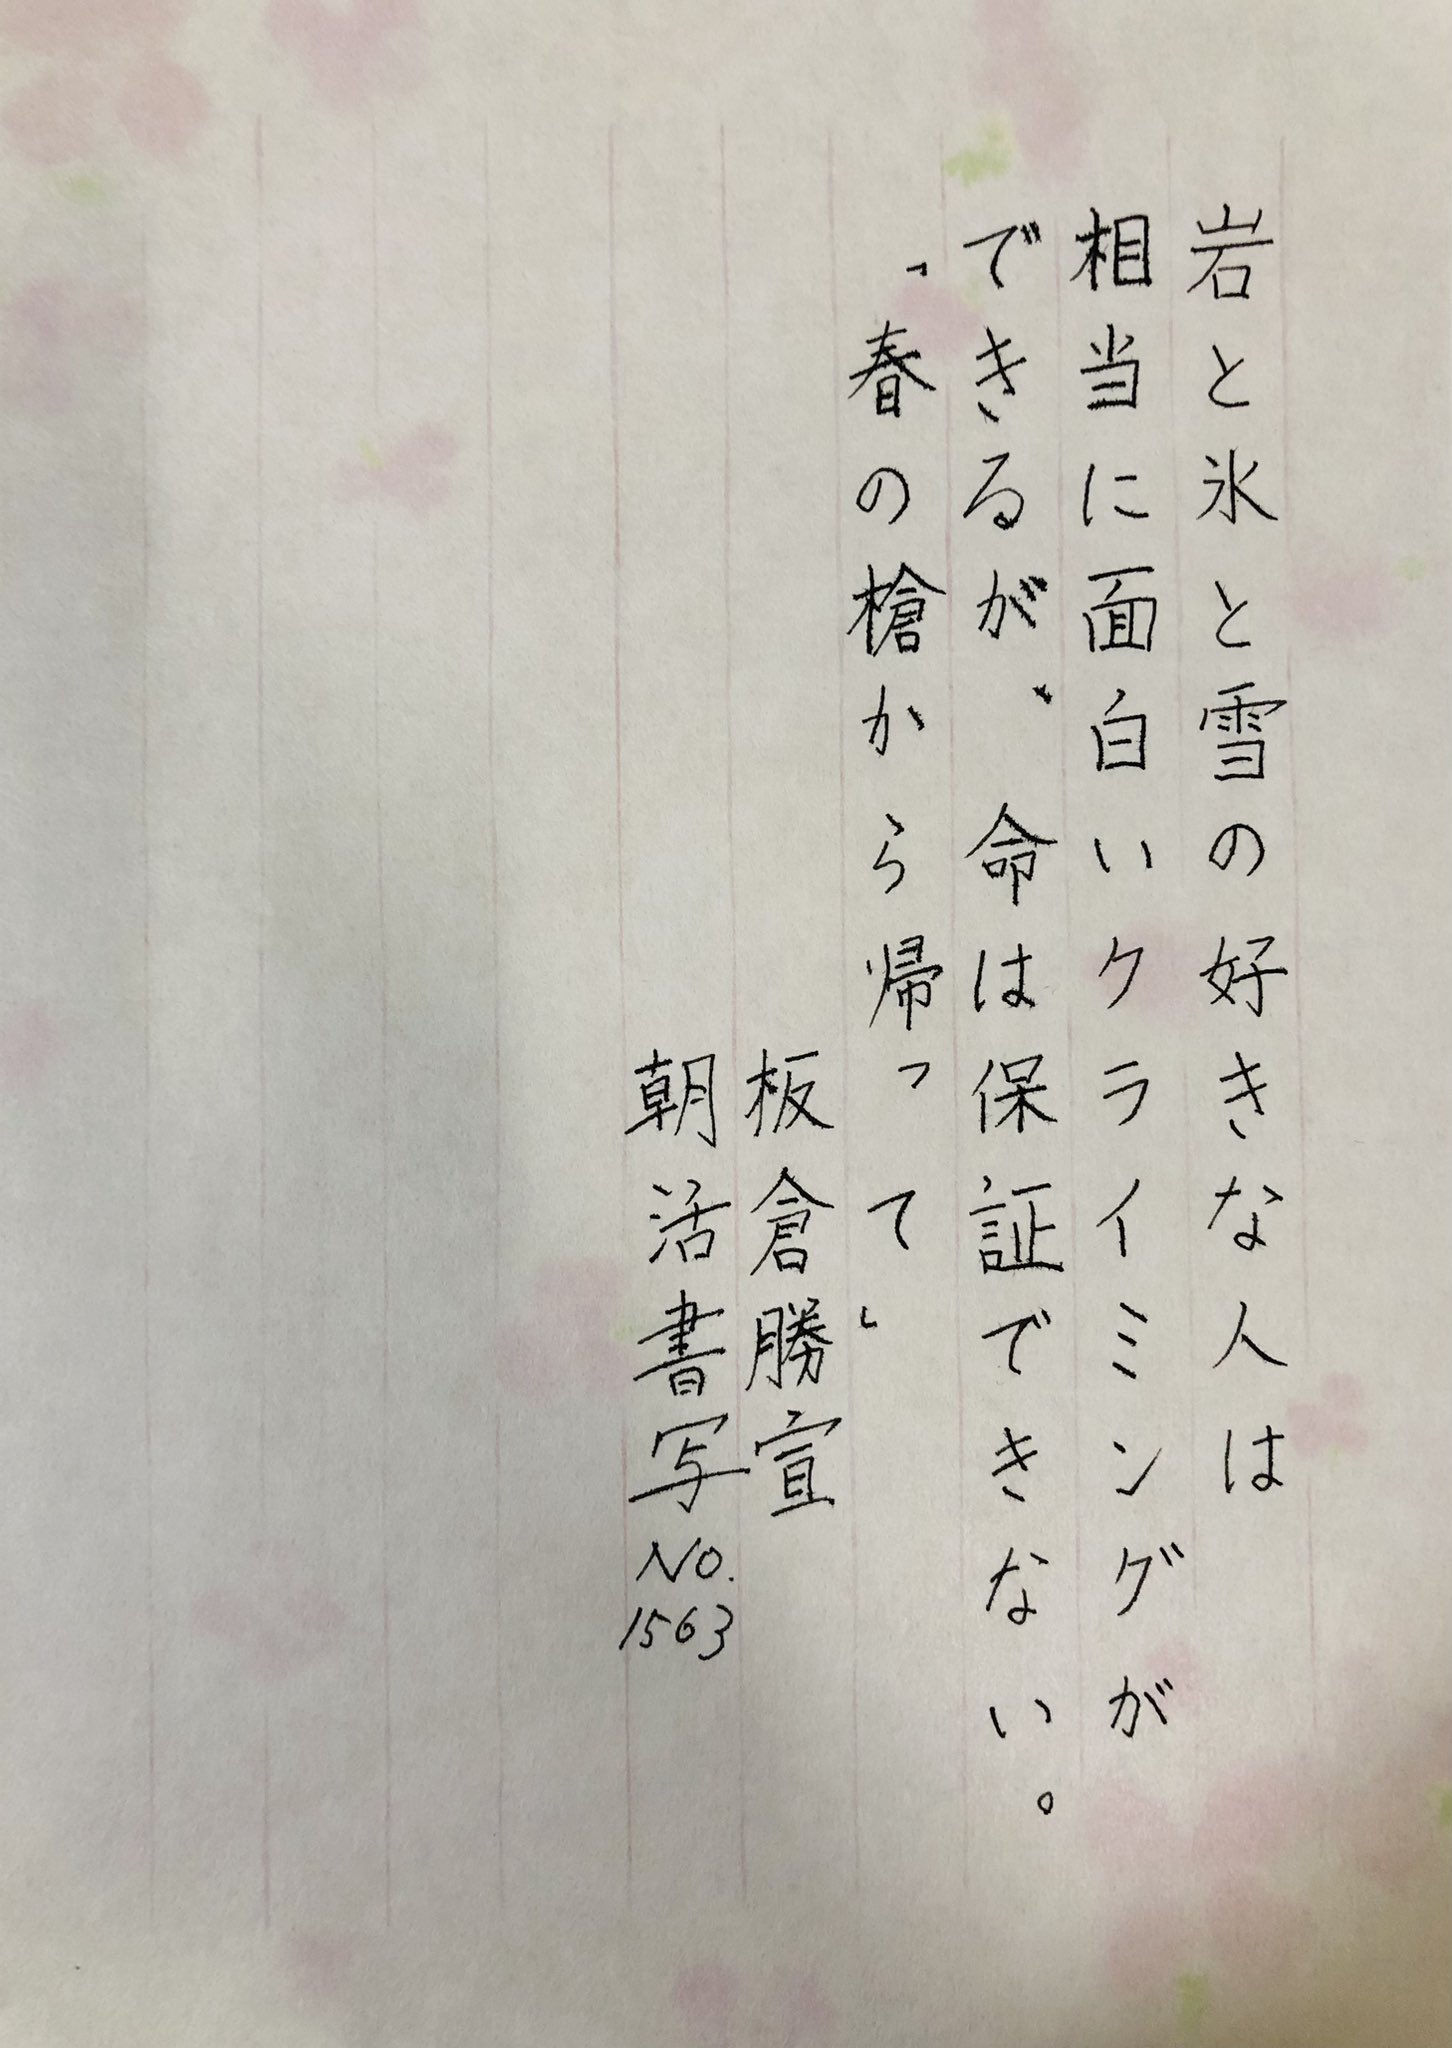 岩と氷と雪の好きな人は
相当に面白いクライミングが
できるが、命は保証できない。
「春の槍から帰って」
板倉勝宣
朝活書写No.1563